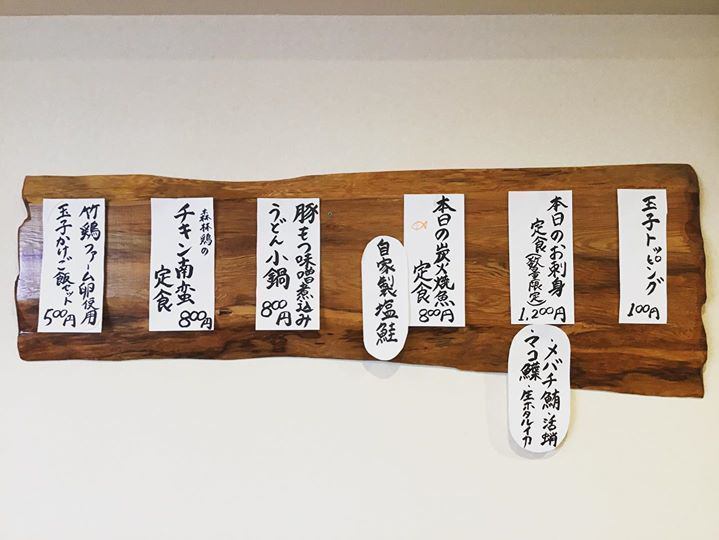 玉子トッピング
100円
本日のお刺身
定食(数量限定)
1,200円
・メバチ鮪・活蛸
マコ鰈・生ホタルイカ
本日の炭火焼魚
定食
800円
自家製塩鮭
豚もつ味噌煮込み
うどん小鍋
800円
森林鶏の
チキン南蛮
定食
800円
竹鶏ファーム卵使用
玉子かけご飯セット
500円